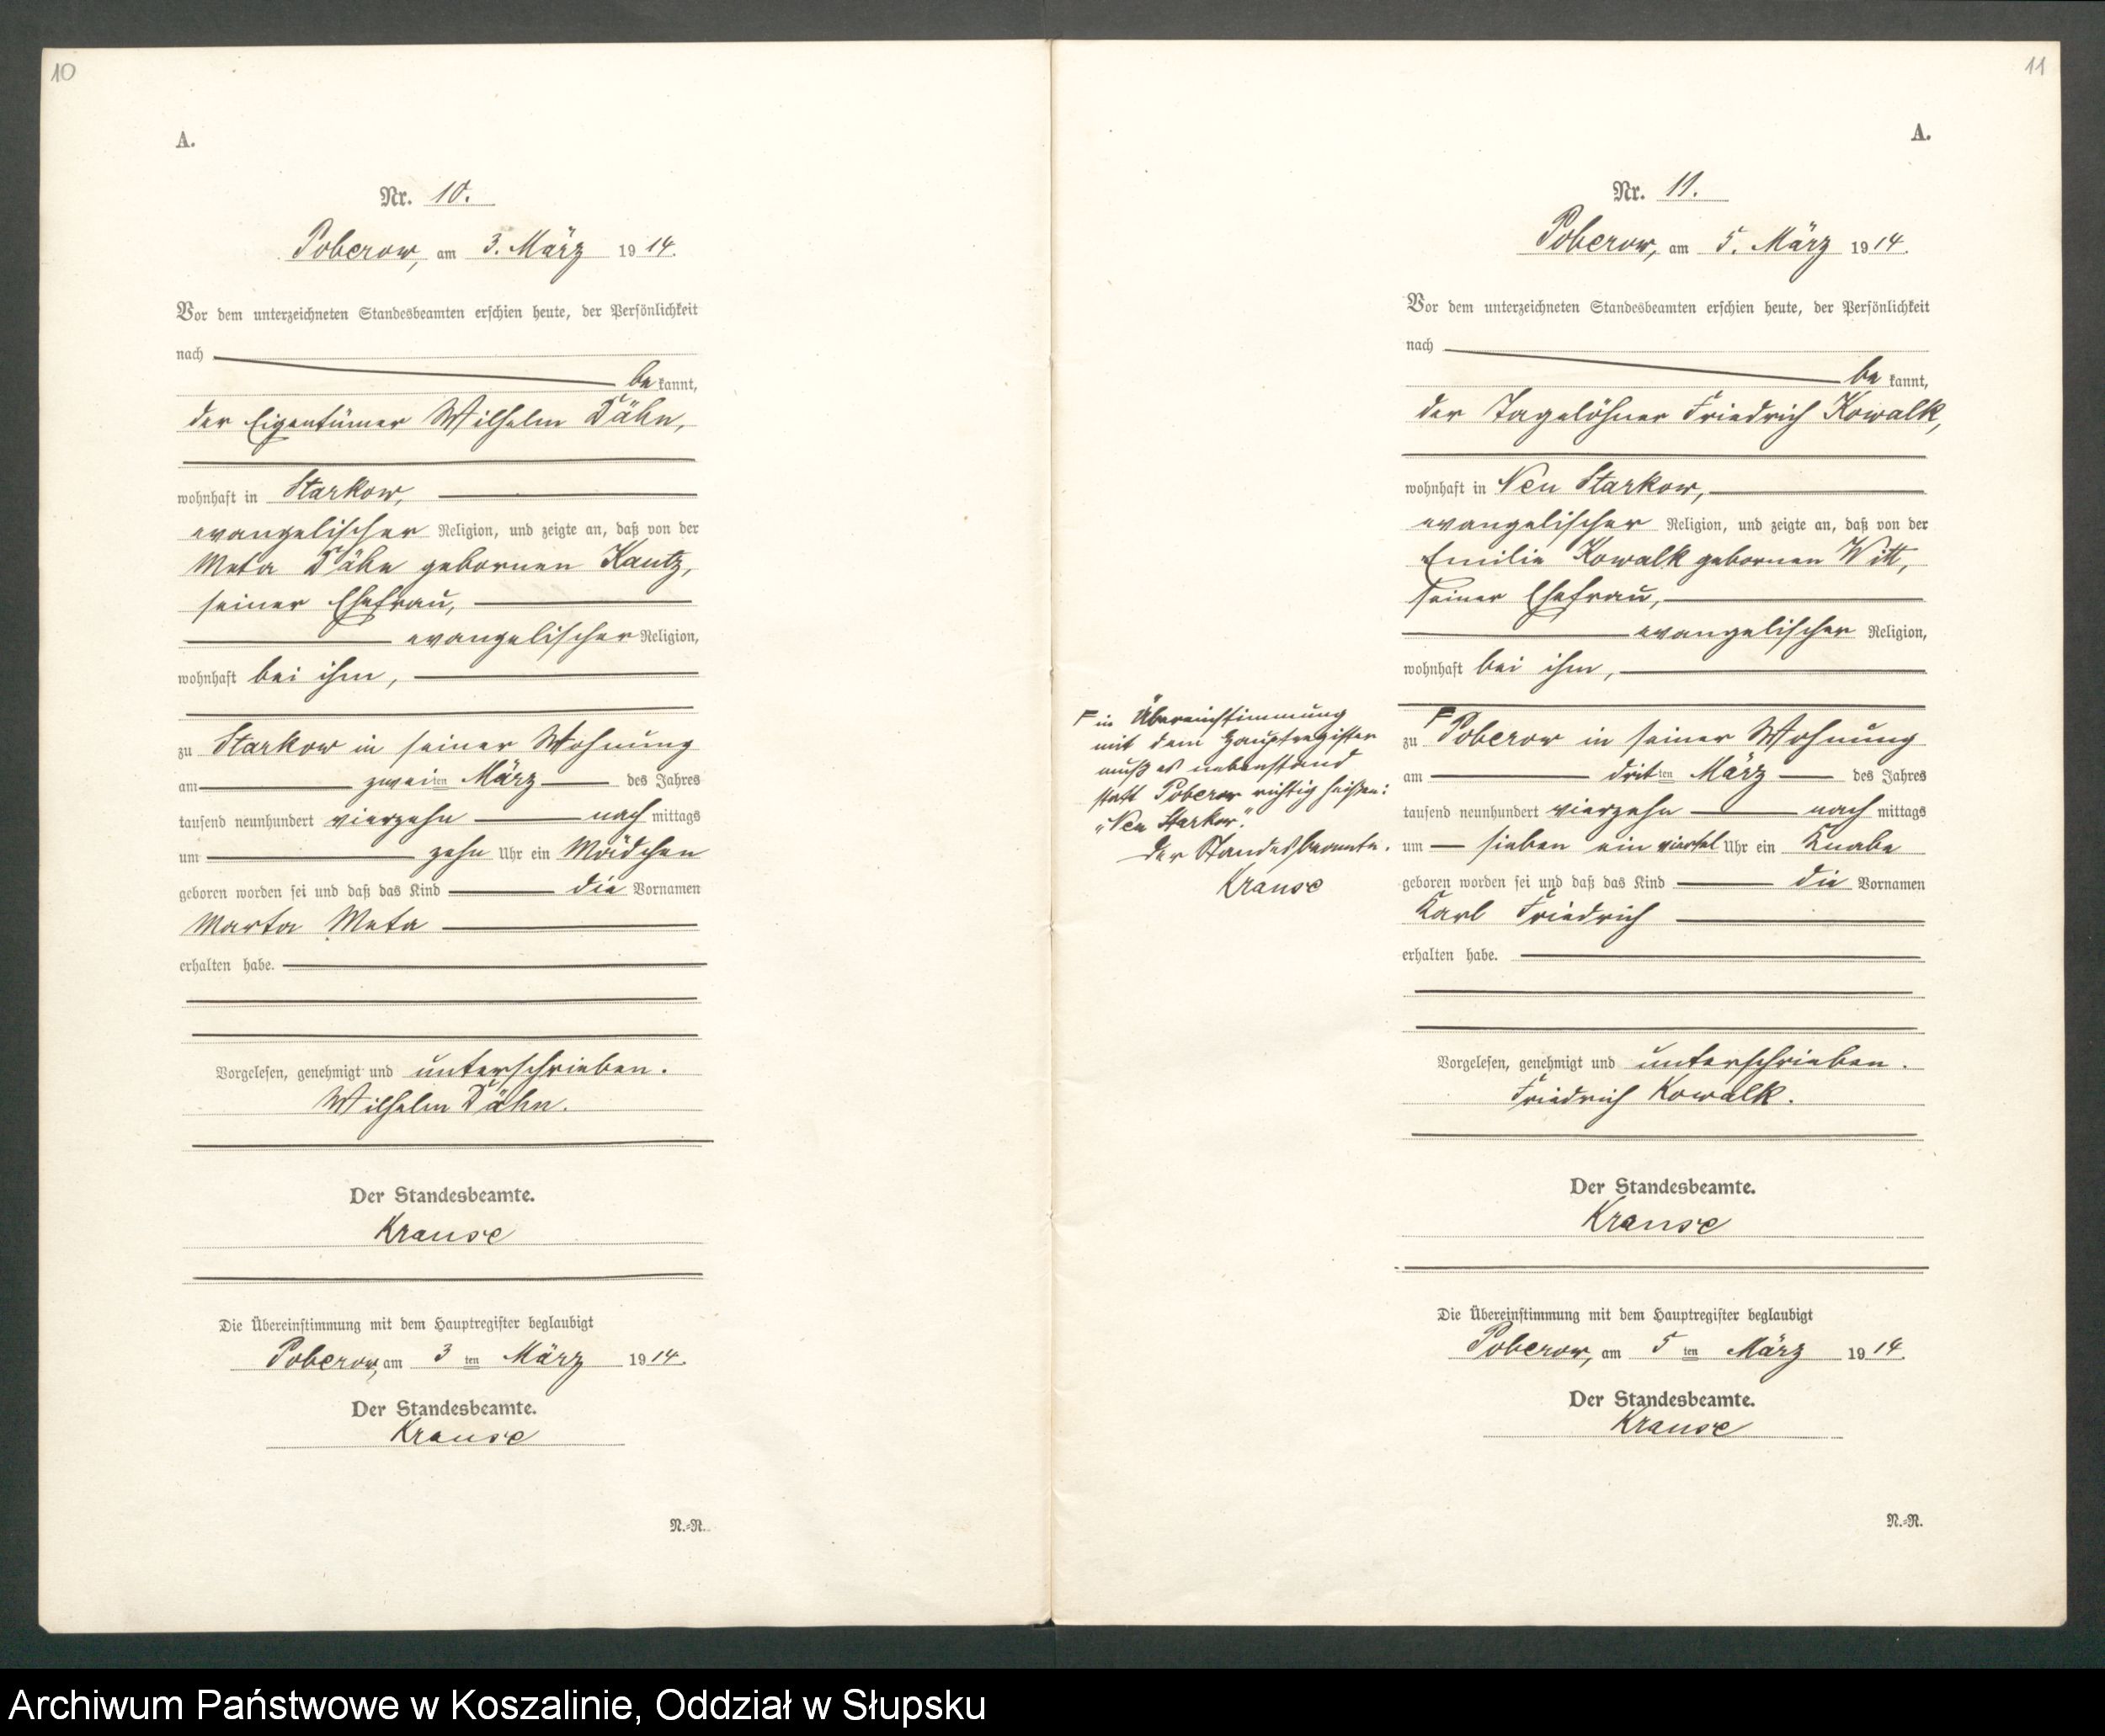 10
A.
Nr. 10.
Poberow, am 3. März 1914.
Vor dem unterzeichneten Standesbeamten erschien heute, der Persönlichkeit
nach
bekannt,
der Eigentümer Wilhelm Dähn,
wohnhaft in Starkow,
evangelischer Religion, und zeigte an, daß von der
Meta Dähn gebornen Kautz,
seiner Ehefrau,
evangelischer Religion,
wohnhaft bei ihm,
zu Starkow in seiner Wohnung
am zweiten März des Jahres
tausend neunhundert vierzehn nachmittags
um zehn Uhr ein Mädchen
geboren worden sei und daß das Kind die Vornamen
Marta Meta
erhalten habe.
Vorgelesen, genehmigt und unterschrieben.
Wilhelm Dähn.
Der Standesbeamte.
Krause
Die Übereinstimmung mit dem Hauptregister beglaubigt
Poberow, am 3ten März 1914.
Der Standesbeamte.
Krause
N.=R.
11
A.
Nr. 11.
Poberow, am 5. März 1914.
Vor dem unterzeichneten Standesbeamten erschien heute, der Persönlichkeit
nach
bekannt,
der Tagelöhner Friedrich Kowalk,
wohnhaft in Neu Starkow,
evangelischer Religion, und zeigte an, daß von der
Emilie Kowalk gebornen Witt,
seiner Ehefrau,
evangelischer Religion,
wohnhaft bei ihm,
zu Poberow in seiner Wohnung
am dritten März des Jahres
tausend neunhundert vierzehn nachmittags
um sieben ein viertel Uhr ein Knabe
geboren worden sei und daß das Kind die Vornamen
Karl Friedrich
erhalten habe.
Vorgelesen, genehmigt und unterschrieben.
Friedrich Kowalk.
Der Standesbeamte.
Krause
Die Übereinstimmung mit dem Hauptregister beglaubigt
Poberow, am 5ten März 1914.
Der Standesbeamte.
Krause
N.=R.
in Übereinstimmung
mit dem Hauptregister
muß es nebenstand
statt Poberow richtig heißen:
"Neu Starkow."
Der Standesbeamte.
Krause
Archiwum Państwowe w Koszalinie, Oddział w Słupsku